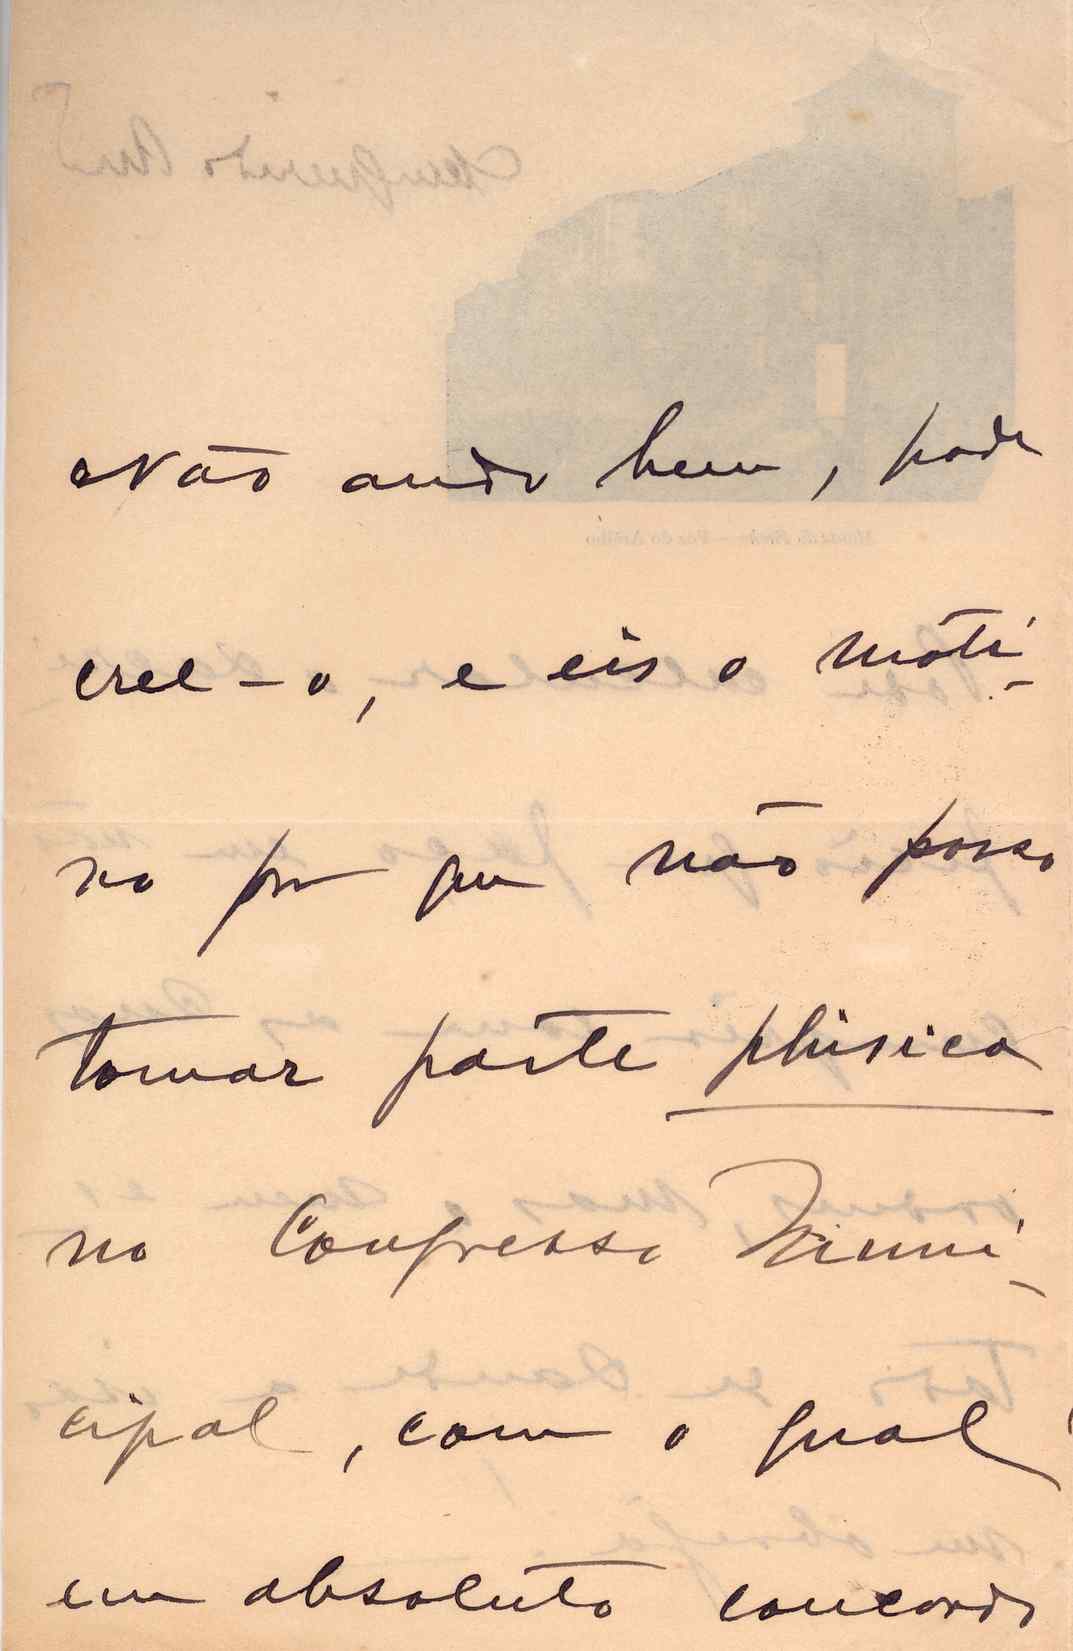 Não ando bem, pode
crel-o, e eis o moti-
vo por que não posso
tomar parte phisica
no Congresso Muni-
cipal, com o qual
em absoluto concordo